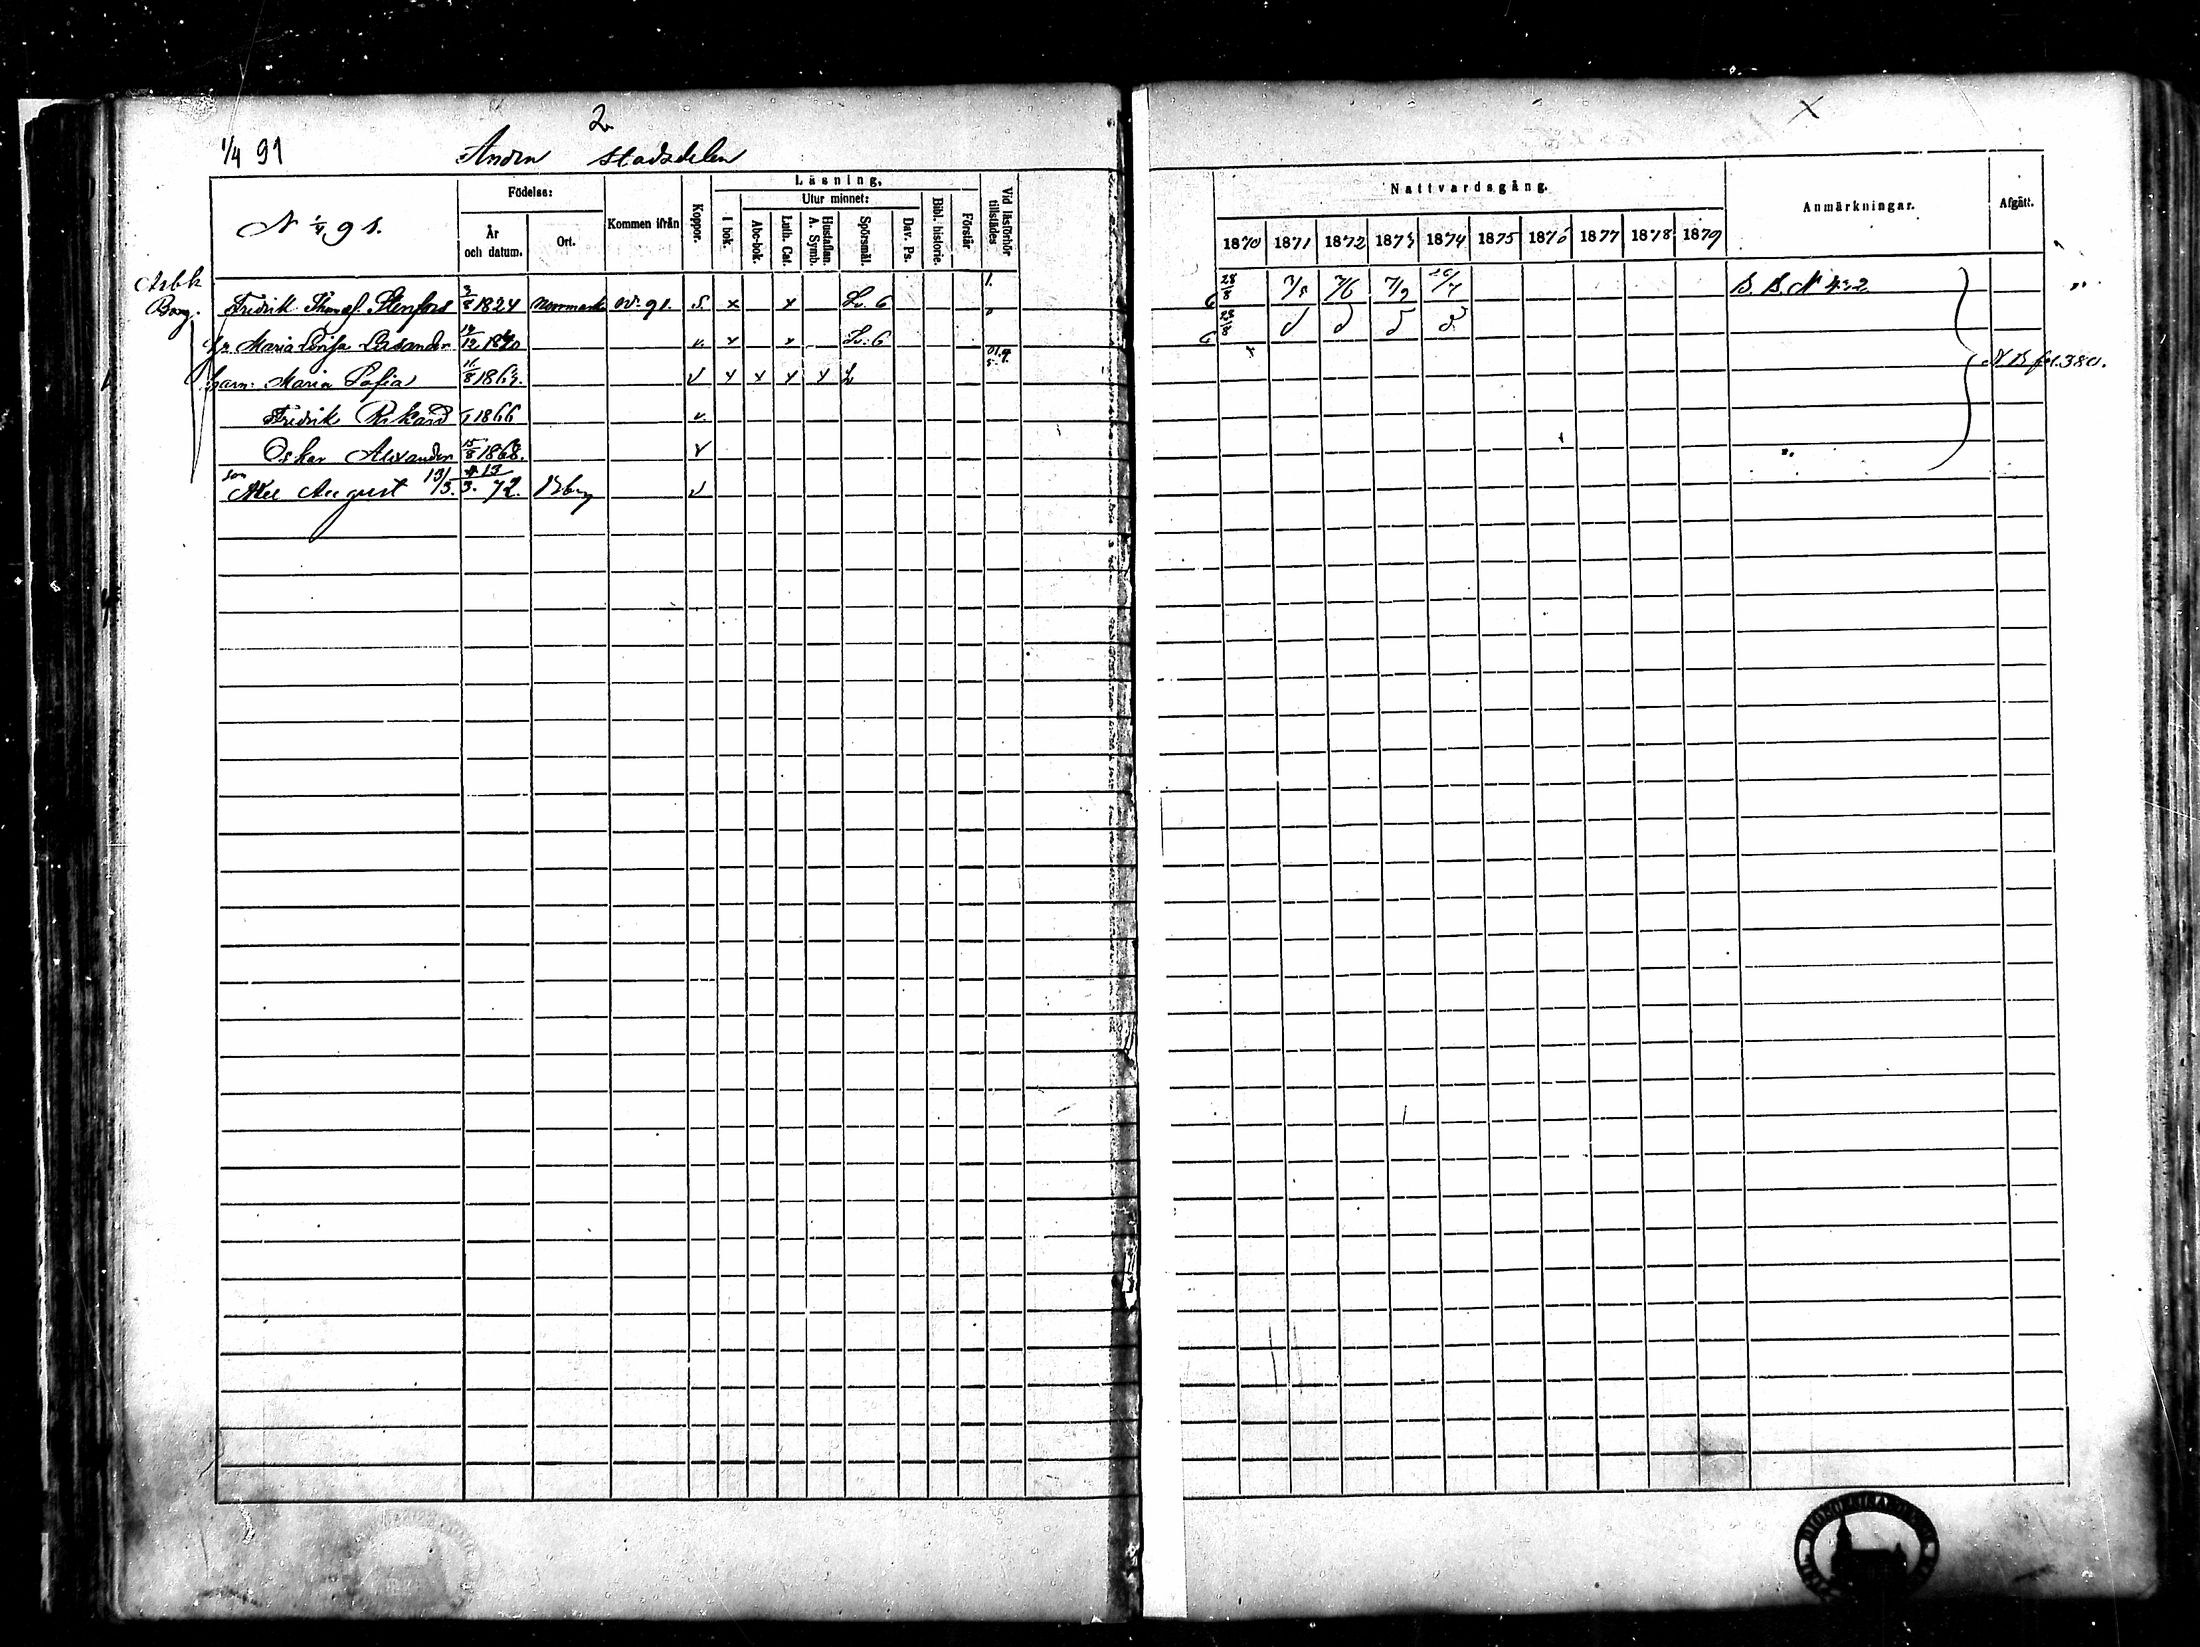 2
1/4 91
Andra stadsdelen
N 1/4 91.
Födelse:
År och datum.
Ort.
Kommen ifrån
Koppor.
Läsning.
I bok.
Utur minnet:
Abc-bok.
Luth. Cat.
Hustaflan. A. Symb.
Spörsmål.
Dav. Ps.
Bibl. historie.
Förstår
Vid läsförhör tillstädes
Nattvardsgång.
1870 1871 1872 1873 1874 1875 1876 1877 1878 1879
Anmärkningar.
Afgått.
Arbk
Borg. Fredrik Thomas. Stenfors 3/8 1824 Norrmark S. x x 6 28/8 7/8 7/6 7/9 26/7 B. B. N 432
hu Maria Lovisa Casander 14/12 1840 v. x x 6 28/8 d d d d.
barn: Maria Sofia 11/8 186 v x x x x N. B. fol. 380.
Fredrik Rikard 1866 v.
Oskar Alexander 15/8 1868. v
son Axel August 13/3. 72. Bbg v